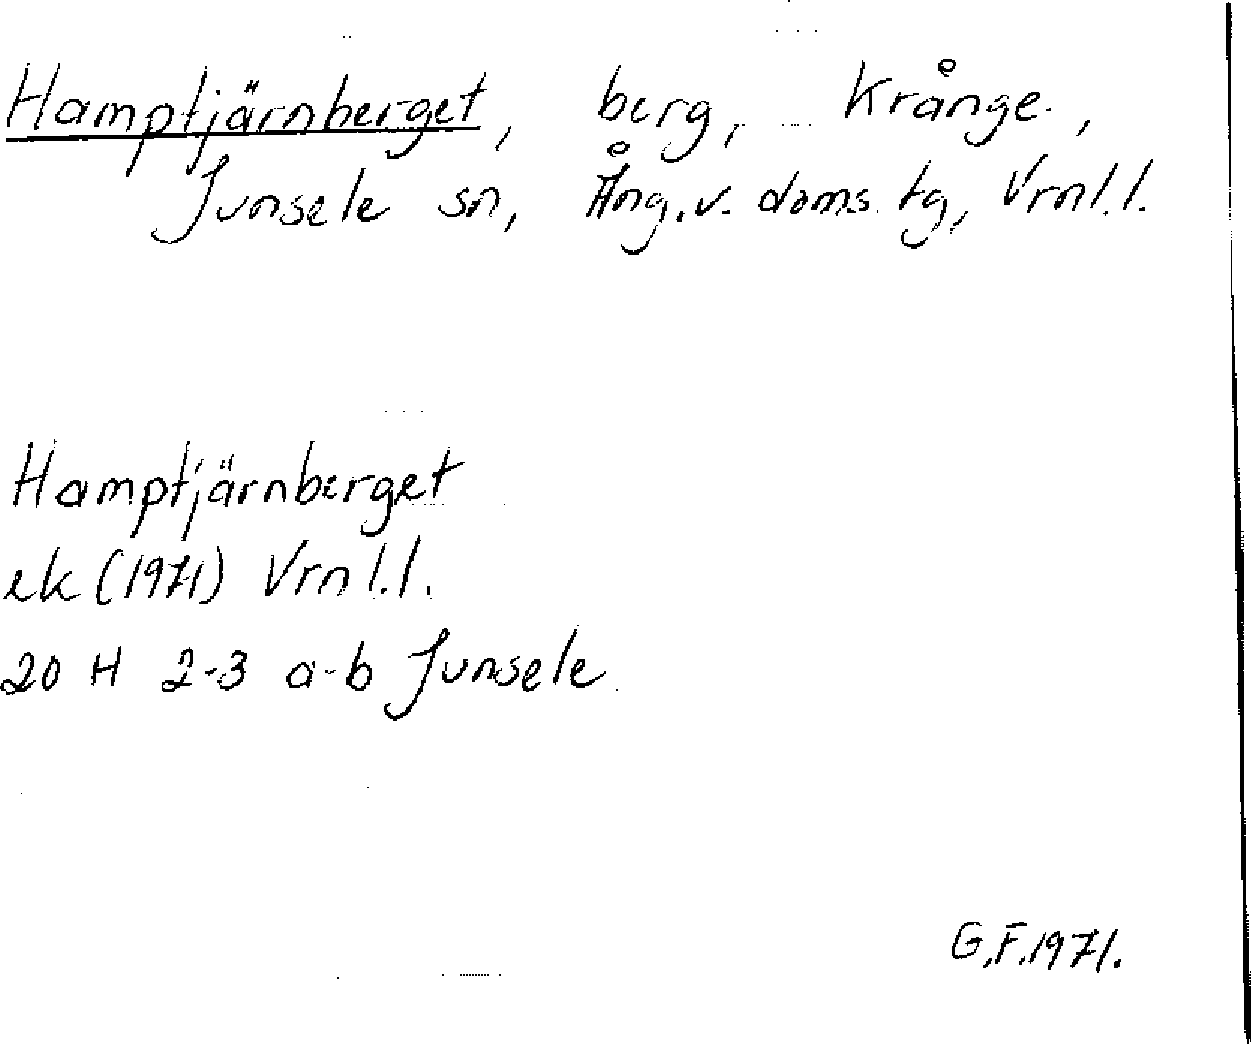 Hamptjärnberget, berg, Krånge,
Junsele sn, Ång. v. doms. tg, Vrnl. l.
Hamptjärnberget
ek (1971) Vrn l. l.
20 H 2-3 a-b Junsele
G.F. 1971.